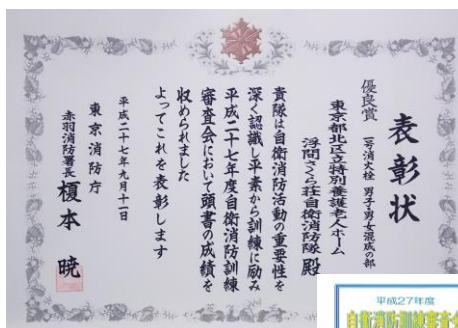 表彰状
優良賞 一号消火栓 男子・男女混成の部
東京都北区立特別養護老人ホーム
浮間さくら荘自衛消防隊 殿
貴隊は自衛消防活動の重要性を
深く認識し平素から訓練に励み
平成二十七年度自衛消防訓練
審査会において頭書の成績を
収められました
よってこれを表彰します
平成二十七年九月十一日
東京消防庁
赤羽消防署長 榎本 暁
平成27年度
自衛消防訓練審査会